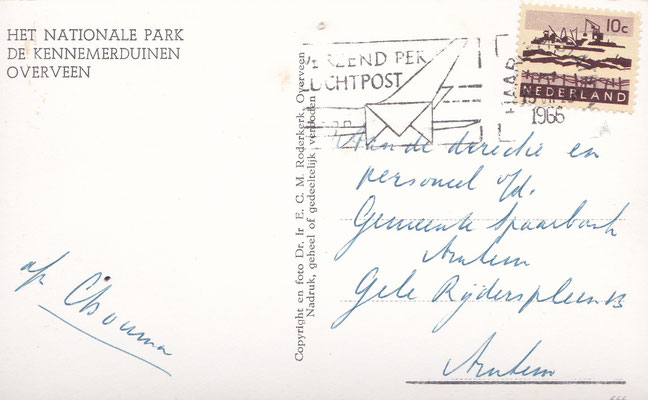 HET NATIONALE PARK
DE KENNEMERDUINEN
OVERVEEN
VERZEND PER
LUCHTPOST
HAAR
1966
10c
NEDERLAND
Copyright en foto Dr. Ir E. C. M. Roderkerk, Overveen
Nadruk, geheel of gedeeltelijk verboden
Aan de directie en
personeel v/d.
Gemeente Spaarbank
Arnhem
Gele Rijdersplein 13
Arnhem
afz CBouma